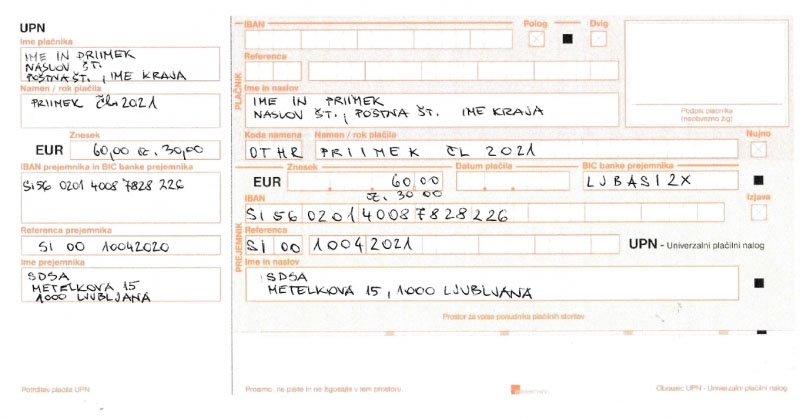 UPN
Ime plačnika
IME IN PRIIMEK
NASLOV ŠT.
POŠTNA ŠT., IME KRAJA
Namen / rok plačila
PRIIMEK ČL 2021
Znesek
EUR 60,00 oz. 30,00
IBAN prejemnika in BIC banke prejemnika
SI56 0201 4008 7828 226
Referenca prejemnika
SI 00 10042020
Ime prejemnika
SDSA
METELKOVA 15
1000 LJUBLJANA
Potrditev plačila UPN
PLAČNIK
IBAN
Polog
Dvig
Referenca
Ime in naslov
IME IN PRIIMEK
NASLOV ŠT., POŠTNA ŠT. IME KRAJA
Podpis plačnika
(neobvezno žig)
Koda namena
Namen / rok plačila
Nujno
OTHR PRIIMEK ČL 2021
PREJEMNIK
Znesek
Datum plačila
BIC banke prejemnika
EUR 60,00
LJBASI2X
oz. 30 00
IBAN
Izjava
SI56 0201 4008 7828 226
Referenca
SI 00 1004 2021
UPN - Univerzalni plačilni nalog
Ime in naslov
SDSA
METELKOVA 15, 1000 LJUBLJANA
Prostor za vpise ponudnika plačilnih storitev
Prosimo, ne pišite in ne žigosajte v tem prostoru.
Obrazec UPN - Univerzalni plačilni nalog